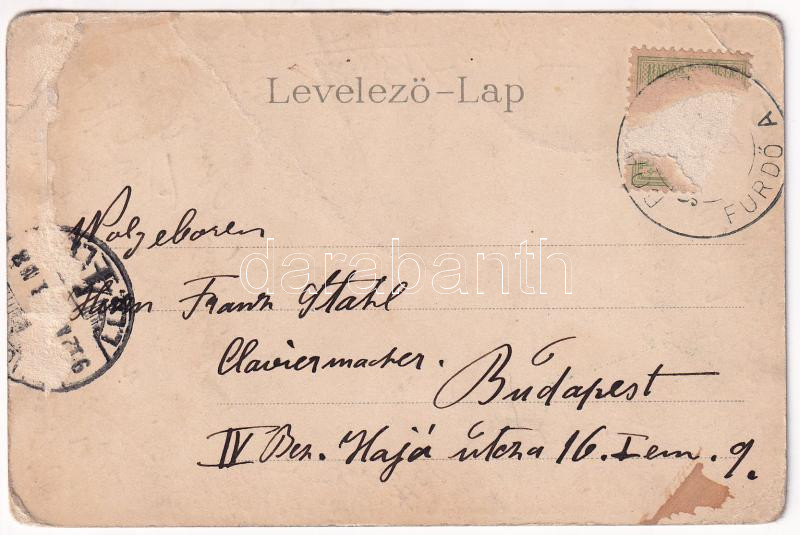 Levelezö-Lap
FÜRDŐ A
Wolgeboren
Herrn Franz Stahl
Claviermacher.
Budapest
IV Bez. Hajó útcza 16. I em. 9.
darabanth